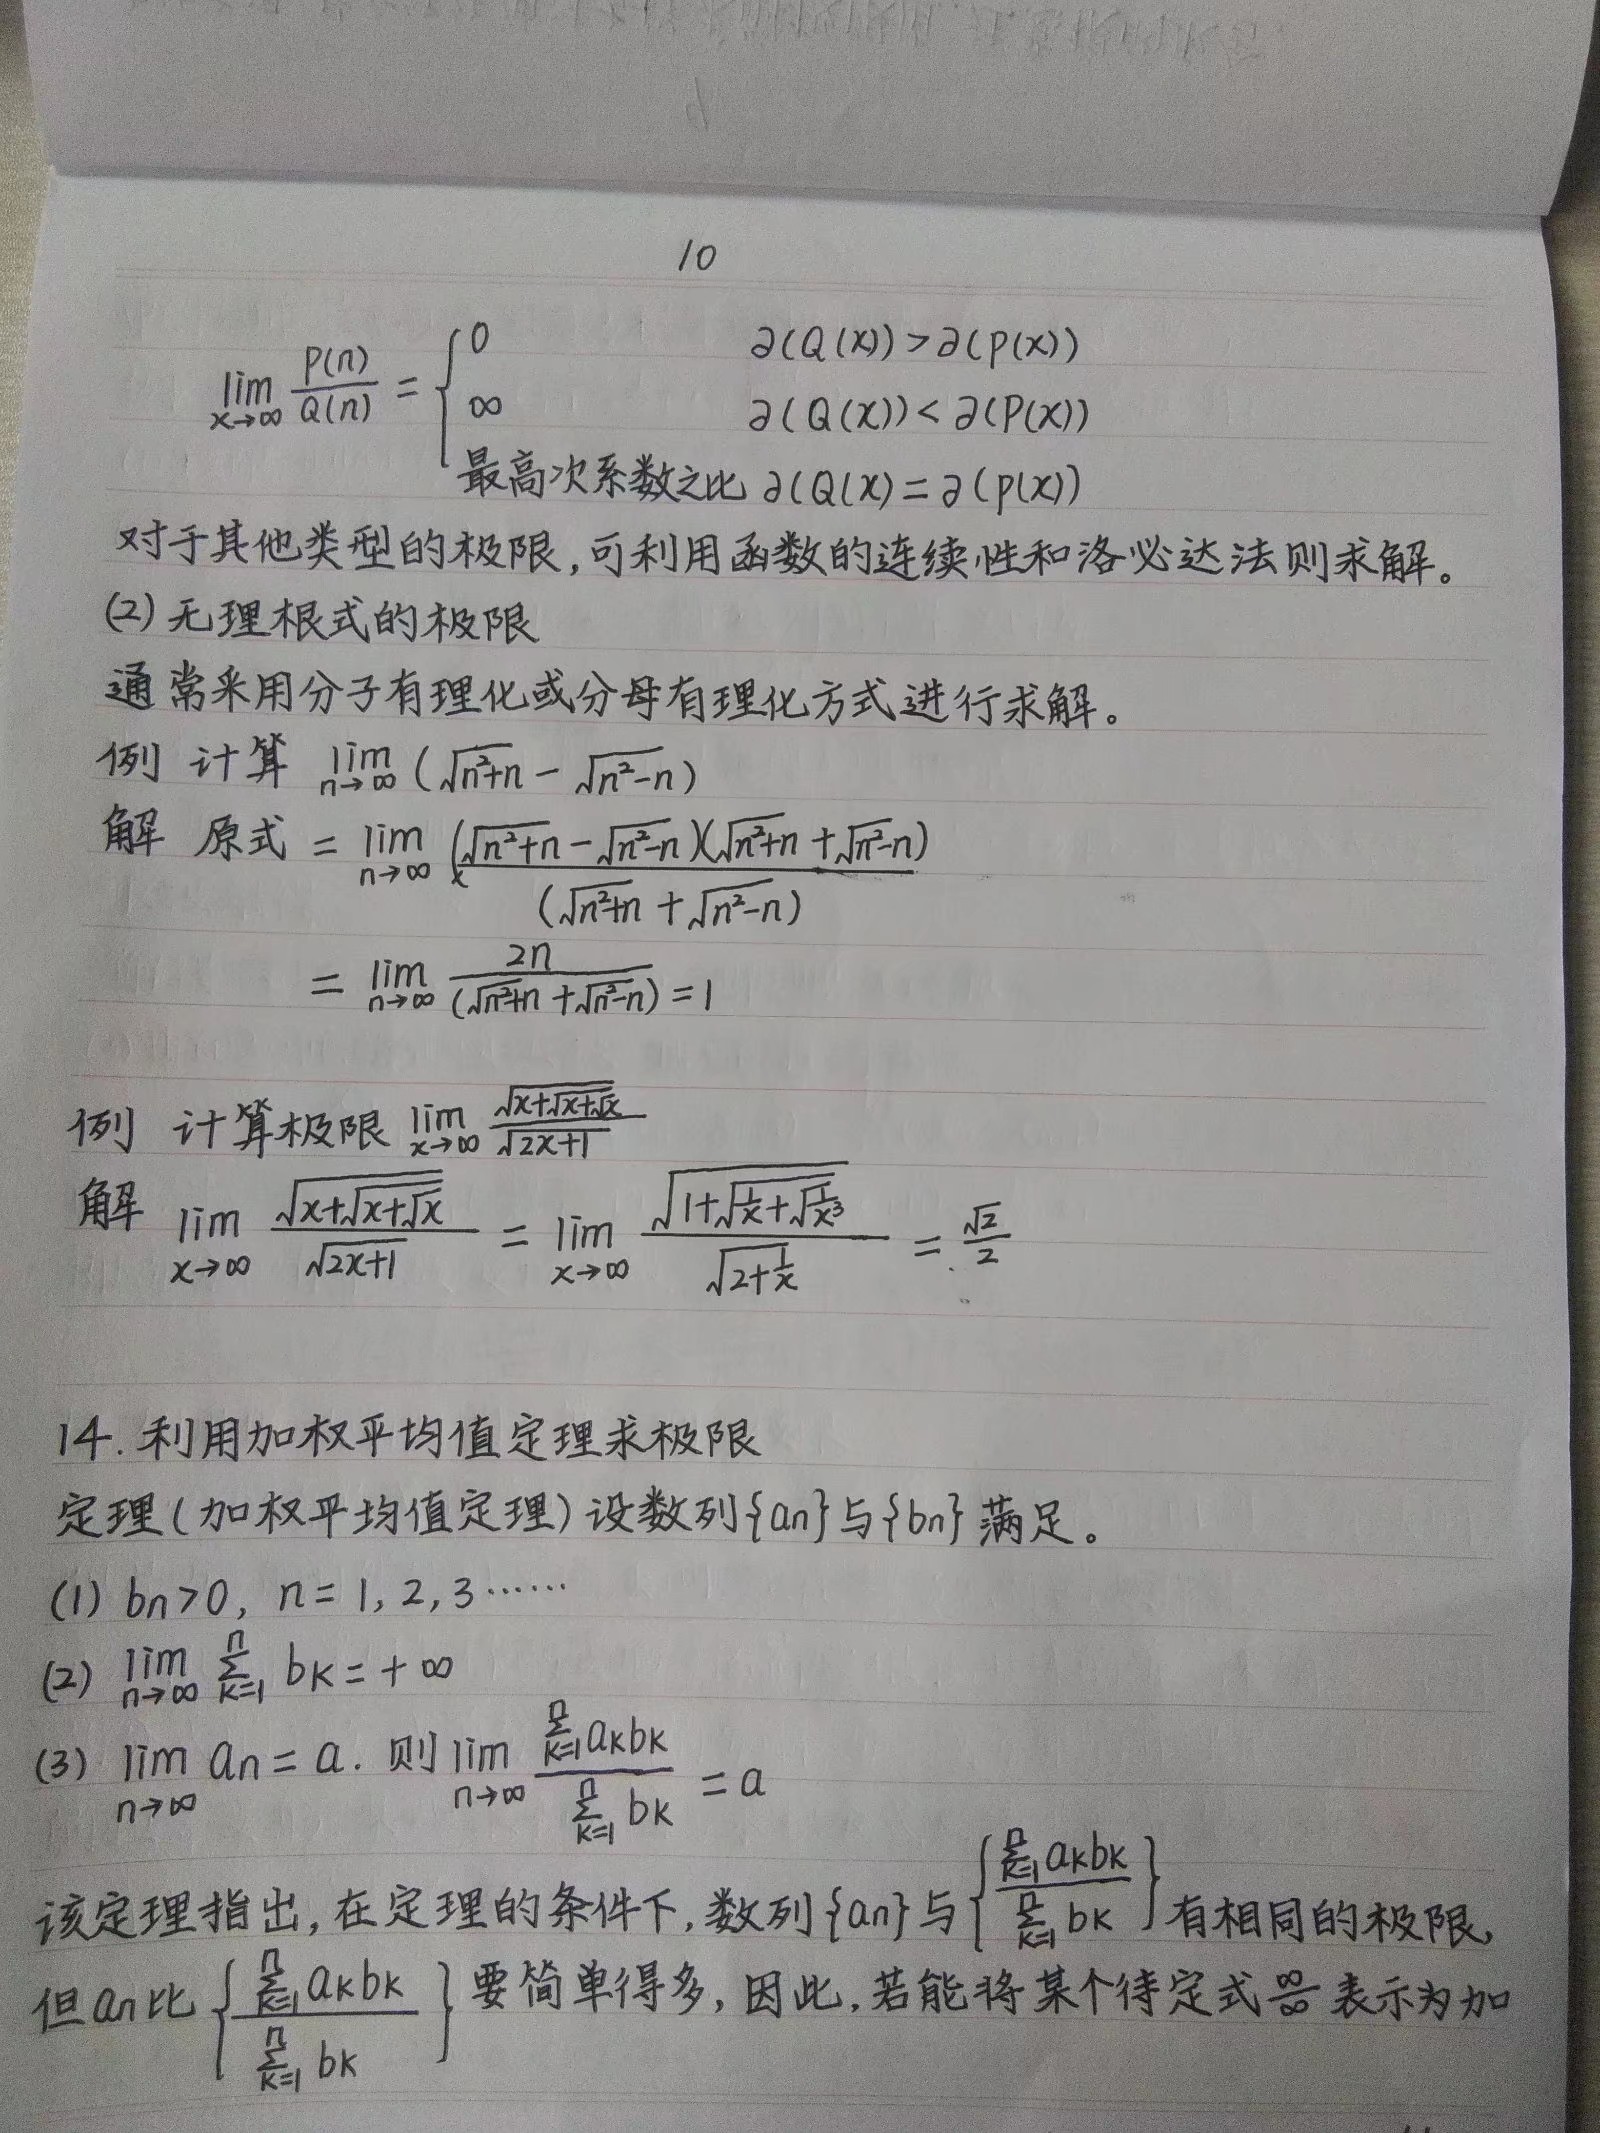 10
lim_{x→∞} P(n)/Q(n) = { 0 ∂(Q(x))>∂(P(x))
∞ ∂(Q(x))<∂(P(x))
最高次系数之比 ∂(Q(x)=∂(P(x))
对于其他类型的极限,可利用函数的连续性和洛必达法则求解。
(2) 无理根式的极限
通常采用分子有理化或分母有理化方式进行求解。
例 计算 lim_{n→∞} (√(n²+n) - √(n²-n))
解 原式 = lim_{n→∞} (√(n²+n) - √(n²-n))(√(n²+n) + √(n²-n)) / (√(n²+n) + √(n²-n))
= lim_{n→∞} 2n / (√(n²+n) + √(n²-n)) = 1
例 计算极限 lim_{x→∞} √(x+√(x+√x)) / √(2x+1)
解 lim_{x→∞} √(x+√(x+√x)) / √(2x+1) = lim_{x→∞} √(1+√(1/x+√(1/x³))) / √(2+1/x) = √2/2
14. 利用加权平均值定理求极限
定理(加权平均值定理)设数列{an}与{bn}满足。
(1) bn>0, n=1,2,3……
(2) lim_{n→∞} Σ_{k=1}^{n} bk=+∞
(3) lim_{n→∞} an=a. 则 lim_{n→∞} Σ_{k=1}^{n} akbk / Σ_{k=1}^{n} bk = a
该定理指出,在定理的条件下,数列{an}与{Σ_{k=1}^{n} akbk / Σ_{k=1}^{n} bk}有相同的极限,
但an比{Σ_{k=1}^{n} akbk / Σ_{k=1}^{n} bk}要简单得多,因此,若能将某个待定式 ∞/∞ 表示为加